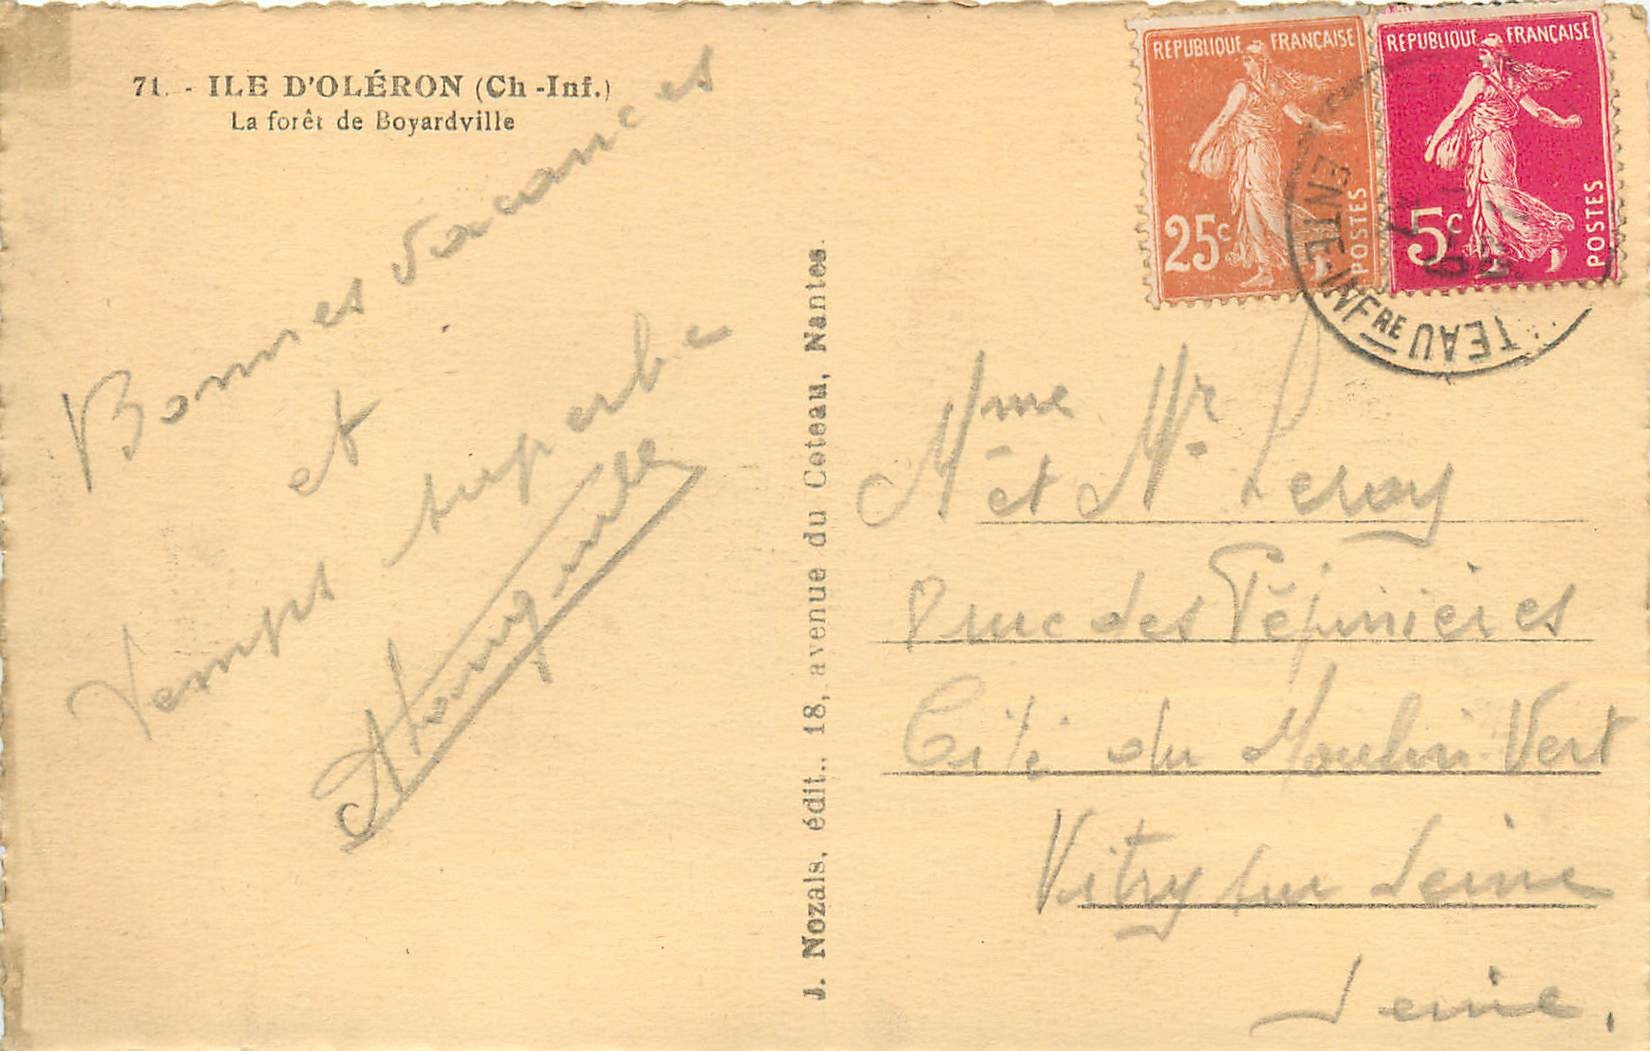 71. - ILE D'OLÉRON (Ch.-Inf.)
La forêt de Boyardville
Bonnes vacances
et
temps superbe
J. Nozais, édit., 18, avenue du Coteau, Nantes.
REPUBLIQUE FRANÇAISE
25c
POSTES
REPUBLIQUE FRANÇAISE
5c
POSTES
ENTE-INFRE
TEAU
Mme et Mr Leroy
rue des Pépinières
Cité du Moulin Vert
Vitry sur Seine
Seine.